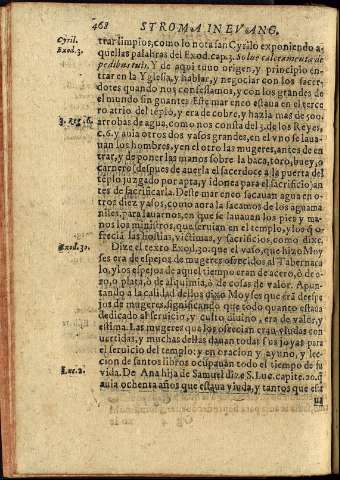 468 STROMA IN EVANG.
Cyril.
Exod. 3.
trar limpios, como lo nota san Cyrilo exponiendo a-
quellas palabras del Exod. cap. 3. Solue calceamenta de
pedibus tuis. Y de aqui tuuo origen, y principio en-
trar en la Yglesia, y hablar, y negociar con los sacer-
dotes quando nos confessamos, y con los grandes de
el mundo sin guantes. Este mar eneo estaua en el terce
ro atrio del tēplo, y era de cobre, y hazia mas de 500.
3. Reg. 6.
arrobas de agua, como nos consta del 3. de los Reyes,
c. 6. y auia otros dos vasos grandes, en el vno se laua-
uan los hombres, y en el otro las mugeres, antes de en
trar, y de poner las manos sobre la baca, toro, buey, o
carnero (despues de auerla el sacerdote a la puerta del
tēplo juzgado por apta, y idonea para el sacrificio) an
tes de sacrificarla. Deste mar eneo sacauan agua en o-
tros diez vasos, como aora la sacamos de los aguama-
niles, para lauarnos, en que se lauauan los pies y ma-
nos los ministros, que seruian en el templo, y los q̄ o-
frecia las hostias, victimas, y sacrificios, como dixe.
Exod. 30.
Dize el texto Exod. 30. que el vaso, que hizo Moy
ses era de espejos de mugeres ofrecidos al Tabernacu
lo, y los espejos de aquel tiempo eran de acero, ò de o-
ro, o plata, ò de alquimia, ò de cosas de valor. Apun-
tando a la calidad dellos dixo Moyses que era de espe
jos de mugeres, significando que todo quanto estaua
dedicado al seruicio, y culto diuino, era de valor, y
estima. Las mugeres que los ofrecian eran viudas con
uertidas, y muchas dellas dauan todas sus joyas para
el seruicio del templo: y en oracion y ayuno, y lec-
cion de santos libros ocupauan todo el tiempo de su
Luc. 2.
vida. De Ana hija de Samuel dize S. Luc. capite. 20. q̄
auia ochenta años que estaua viuda, y tantos que esta
ua